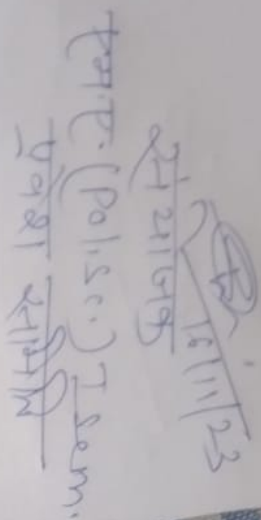 16/11/23
संयोजक
एम.ए. (Pol. Sc.) I Sem.
प्रवेश समिति